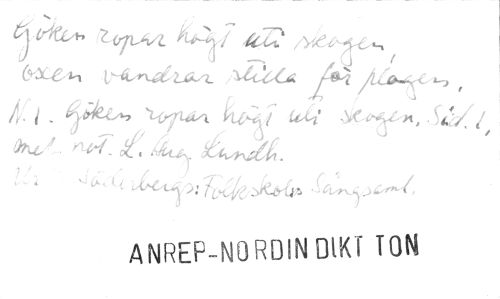 Göken ropar högt uti skogen,
oxen vandrar stilla för plogen,
N. 1. Göken ropar högt uti skogen. Sid. 1,
mel. not. L. Aug. Lundh.
Ur Söderbergs: Folkskolans Sångsaml.
ANREP-NORDIN DIKT TON